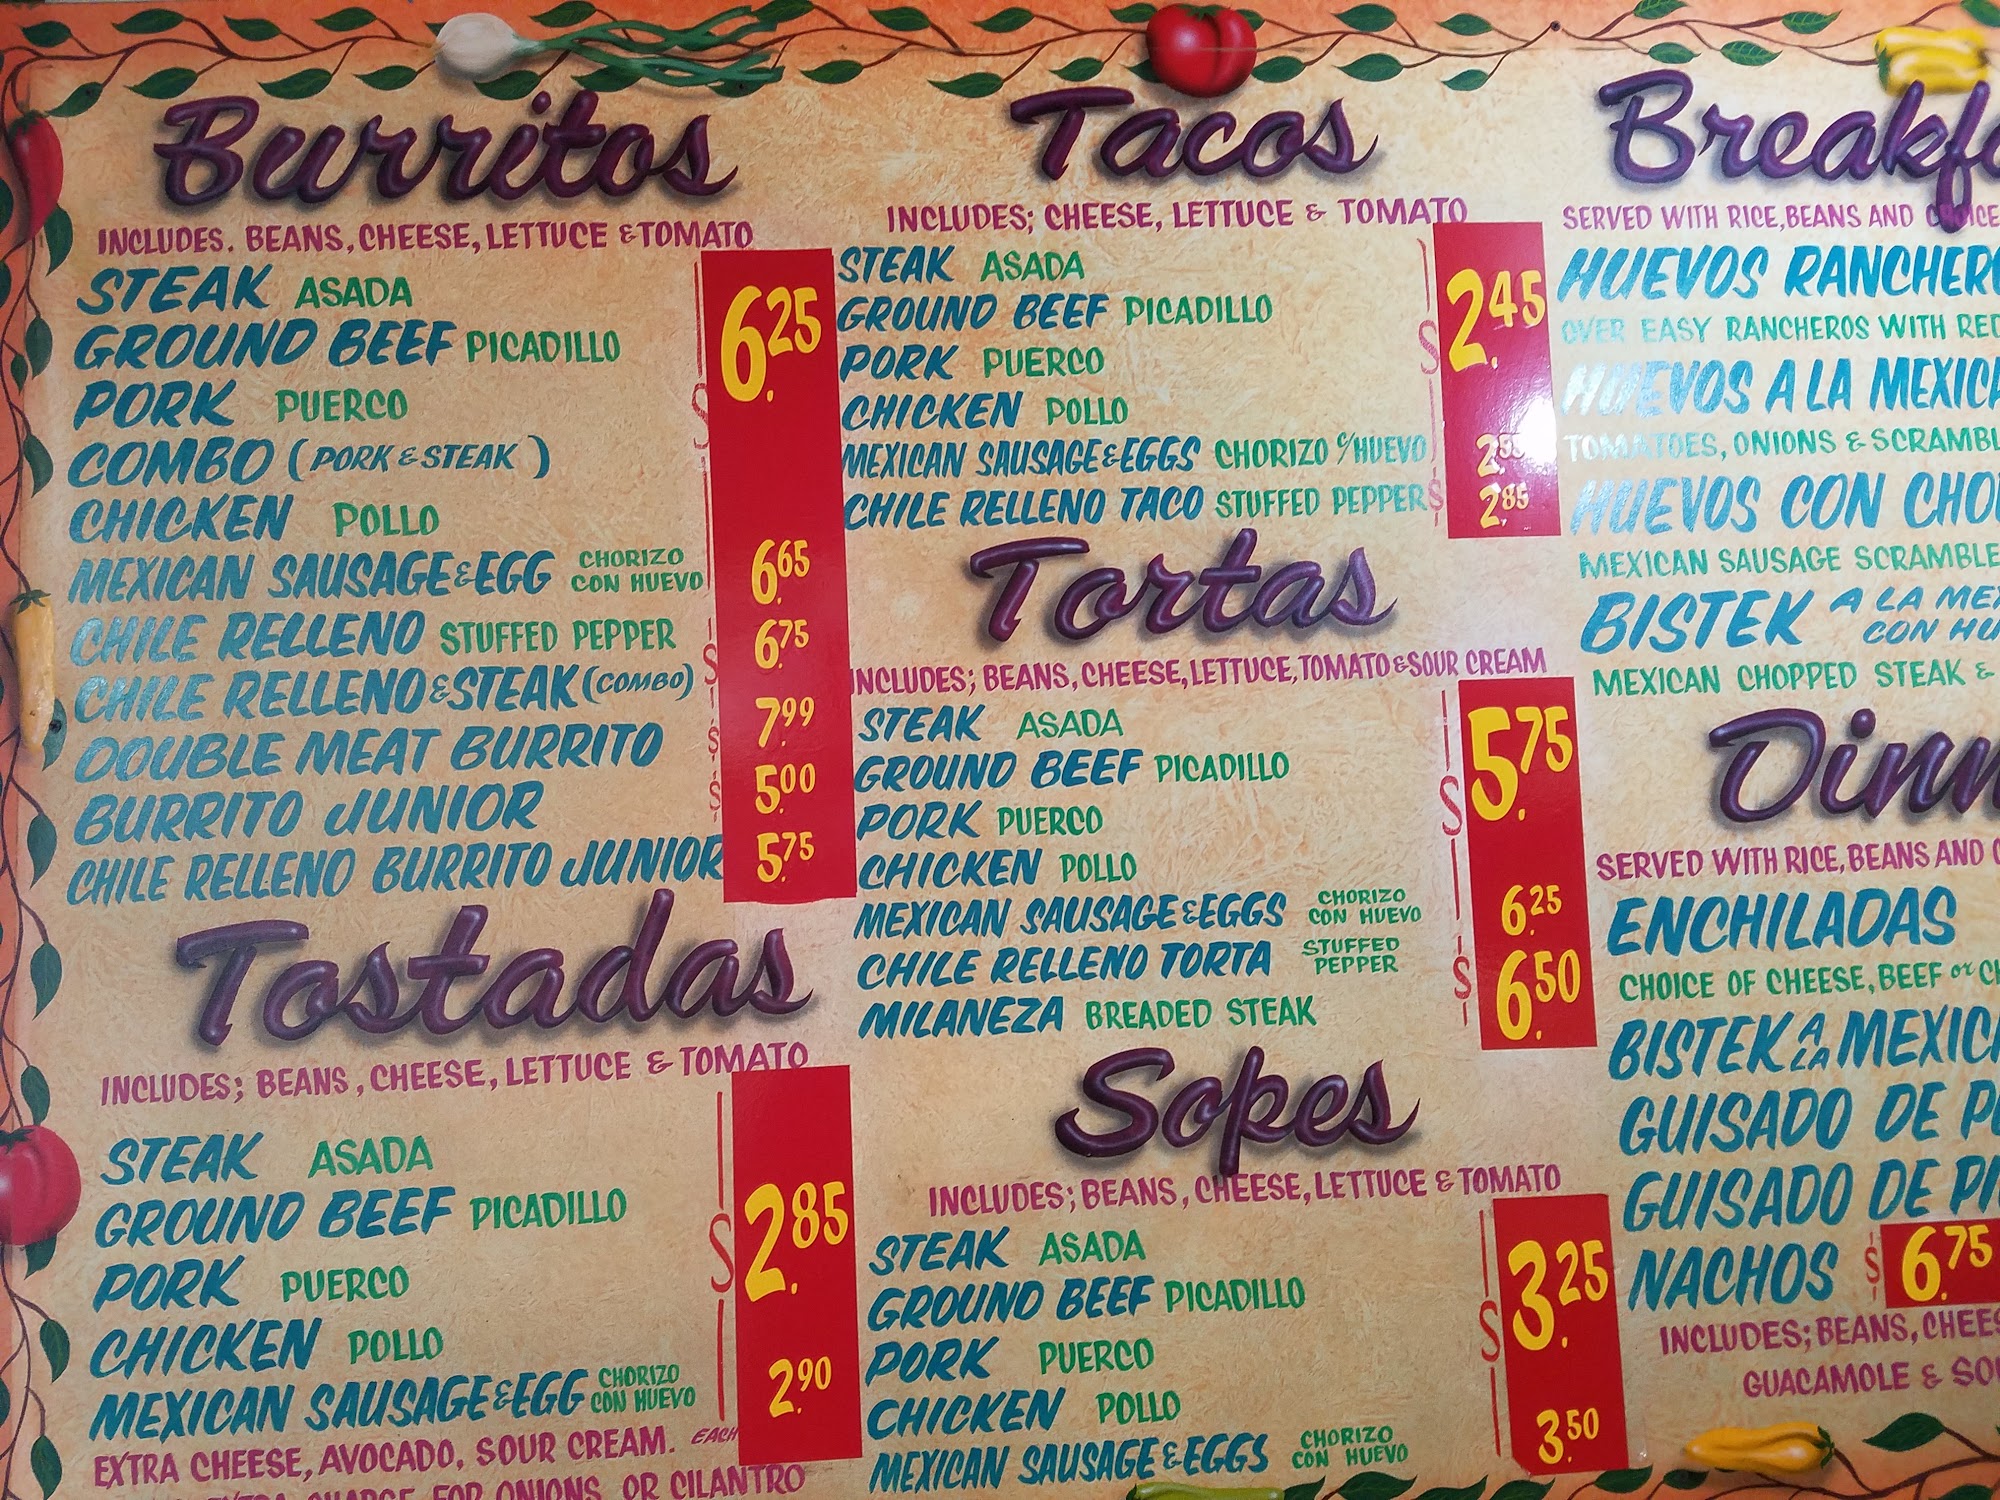 Burritos
INCLUDES. BEANS, CHEESE, LETTUCE & TOMATO
STEAK ASADA
GROUND BEEF PICADILLO
PORK PUERCO
$ 6.25
COMBO (PORK & STEAK)
CHICKEN POLLO
MEXICAN SAUSAGE & EGG CHORIZO CON HUEVO
6.65
CHILE RELLENO STUFFED PEPPER
$ 6.75
CHILE RELLENO & STEAK (COMBO)
DOUBLE MEAT BURRITO
$ 7.99
BURRITO JUNIOR
$ 5.00
CHILE RELLENO BURRITO JUNIOR
5.75
Tostadas
INCLUDES; BEANS, CHEESE, LETTUCE & TOMATO
STEAK ASADA
GROUND BEEF PICADILLO
$ 2.85
PORK PUERCO
CHICKEN POLLO
MEXICAN SAUSAGE & EGG CHORIZO CON HUEVO
2.90
EXTRA CHEESE, AVOCADO, SOUR CREAM. EACH
EXTRA CHARGE FOR ONIONS OR CILANTRO
Tacos
INCLUDES; CHEESE, LETTUCE & TOMATO
STEAK ASADA
GROUND BEEF PICADILLO
$ 2.45
PORK PUERCO
CHICKEN POLLO
MEXICAN SAUSAGE & EGGS CHORIZO C/HUEVO
CHILE RELLENO TACO STUFFED PEPPER
$ 2.85
Tortas
INCLUDES; BEANS, CHEESE, LETTUCE, TOMATO & SOUR CREAM
STEAK ASADA
GROUND BEEF PICADILLO
$ 5.75
PORK PUERCO
CHICKEN POLLO
MEXICAN SAUSAGE & EGGS CHORIZO CON HUEVO
6.25
CHILE RELLENO TORTA STUFFED PEPPER
$ 6.50
MILANEZA BREADED STEAK
Sopes
INCLUDES; BEANS, CHEESE, LETTUCE & TOMATO
STEAK ASADA
GROUND BEEF PICADILLO
$ 3.25
PORK PUERCO
CHICKEN POLLO
MEXICAN SAUSAGE & EGGS CHORIZO CON HUEVO
3.50
Breakfa
SERVED WITH RICE, BEANS AND CHOICE
HUEVOS RANCHERO
OVER EASY RANCHEROS WITH RED
HUEVOS A LA MEXICA
TOMATOES, ONIONS & SCRAMBL
HUEVOS CON CHO
MEXICAN SAUSAGE SCRAMBLE
BISTEK A LA MEX
CON HU
MEXICAN CHOPPED STEAK &
Dinn
SERVED WITH RICE, BEANS AND C
ENCHILADAS
CHOICE OF CHEESE, BEEF or CH
BISTEK A LA MEXIC
GUISADO DE PO
GUISADO DE P
NACHOS $ 6.75
INCLUDES; BEANS, CHEES
GUACAMOLE & SO